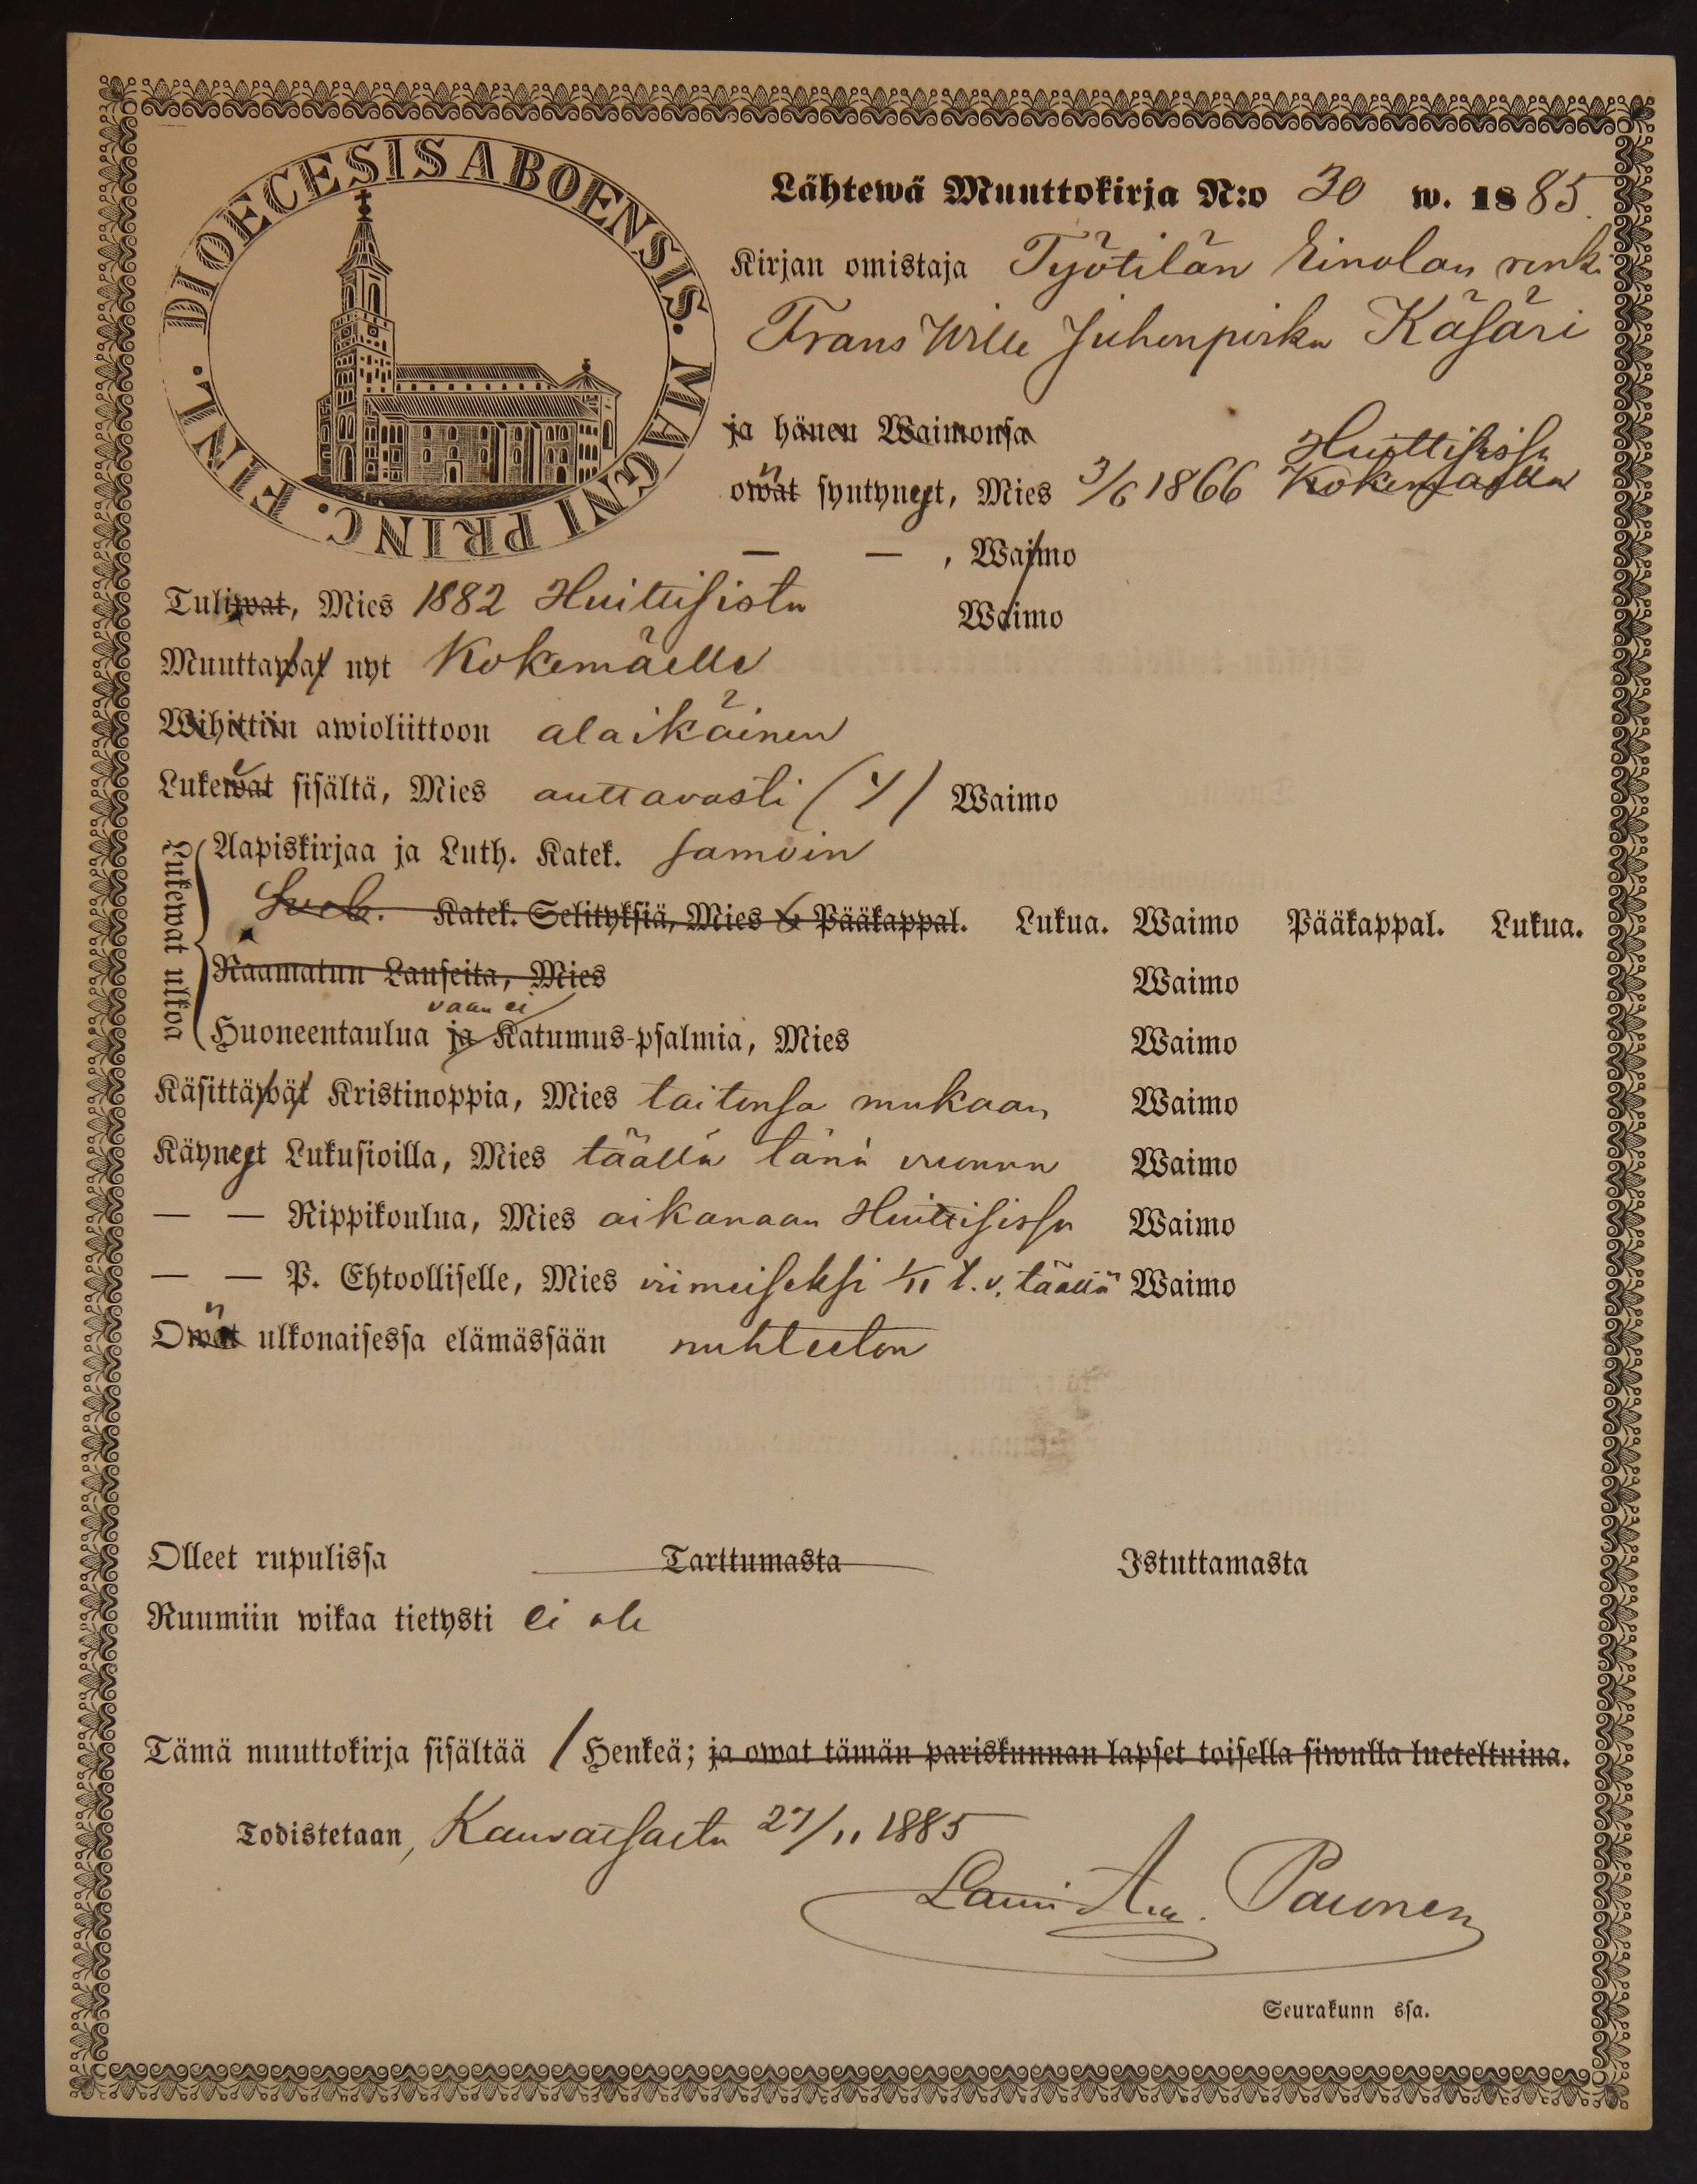 DIOECESIS ABOENSIS. MAGNI PRINC. FINL.
Lähtewä Muuttokirja N:o 30 w. 1885.
Kirjan omistaja Työtilän Einolan renki
Frans Wille Juhonpoika Käsäri
ja hänen Waimonsa
Huittisissa
owat syntyneet, Mies 3/6 1866 Kokemäellä
— — , Waimo
Tuliwat, Mies 1882 Huittisista Waimo
Muuttawat nyt Kokemäelle
Wihittiin awioliittoon alaikäinen
Lukewat sisältä, Mies auttavasti (4) Waimo
Lukewat ulkoa
Aapiskirjaa ja Luth. Katek. samoin
Sveb. Katek. Selityksiä, Mies 6 Pääkappal. Lukua. Waimo Pääkappal. Lukua.
Raamatun Lauseita, Mies Waimo
vaan ei
Huoneentaulua ja Katumus-psalmia, Mies Waimo
Käsittäwät Kristinoppia, Mies taitonsa mukaan Waimo
Käyneet Lukusioilla, Mies täällä tänä vuonna Waimo
— — Rippikoulua, Mies aikanaan Huittisissa Waimo
— — P. Ehtoolliselle, Mies viimeiseksi 1/11 t. v. täällä Waimo
n
Owat ulkonaisessa elämässään nuhteeton
Olleet rupulissa Tarttumasta Istuttamasta
Ruumiin wikaa tietysti ei ole
Tämä muuttokirja sisältää 1 Henkeä; ja owat tämän pariskunnan lapset toisella siwulla lueteltuina.
Todistetaan, Kauvatsasta 27/11 1885
Pauonen
Seurakunn ssa.